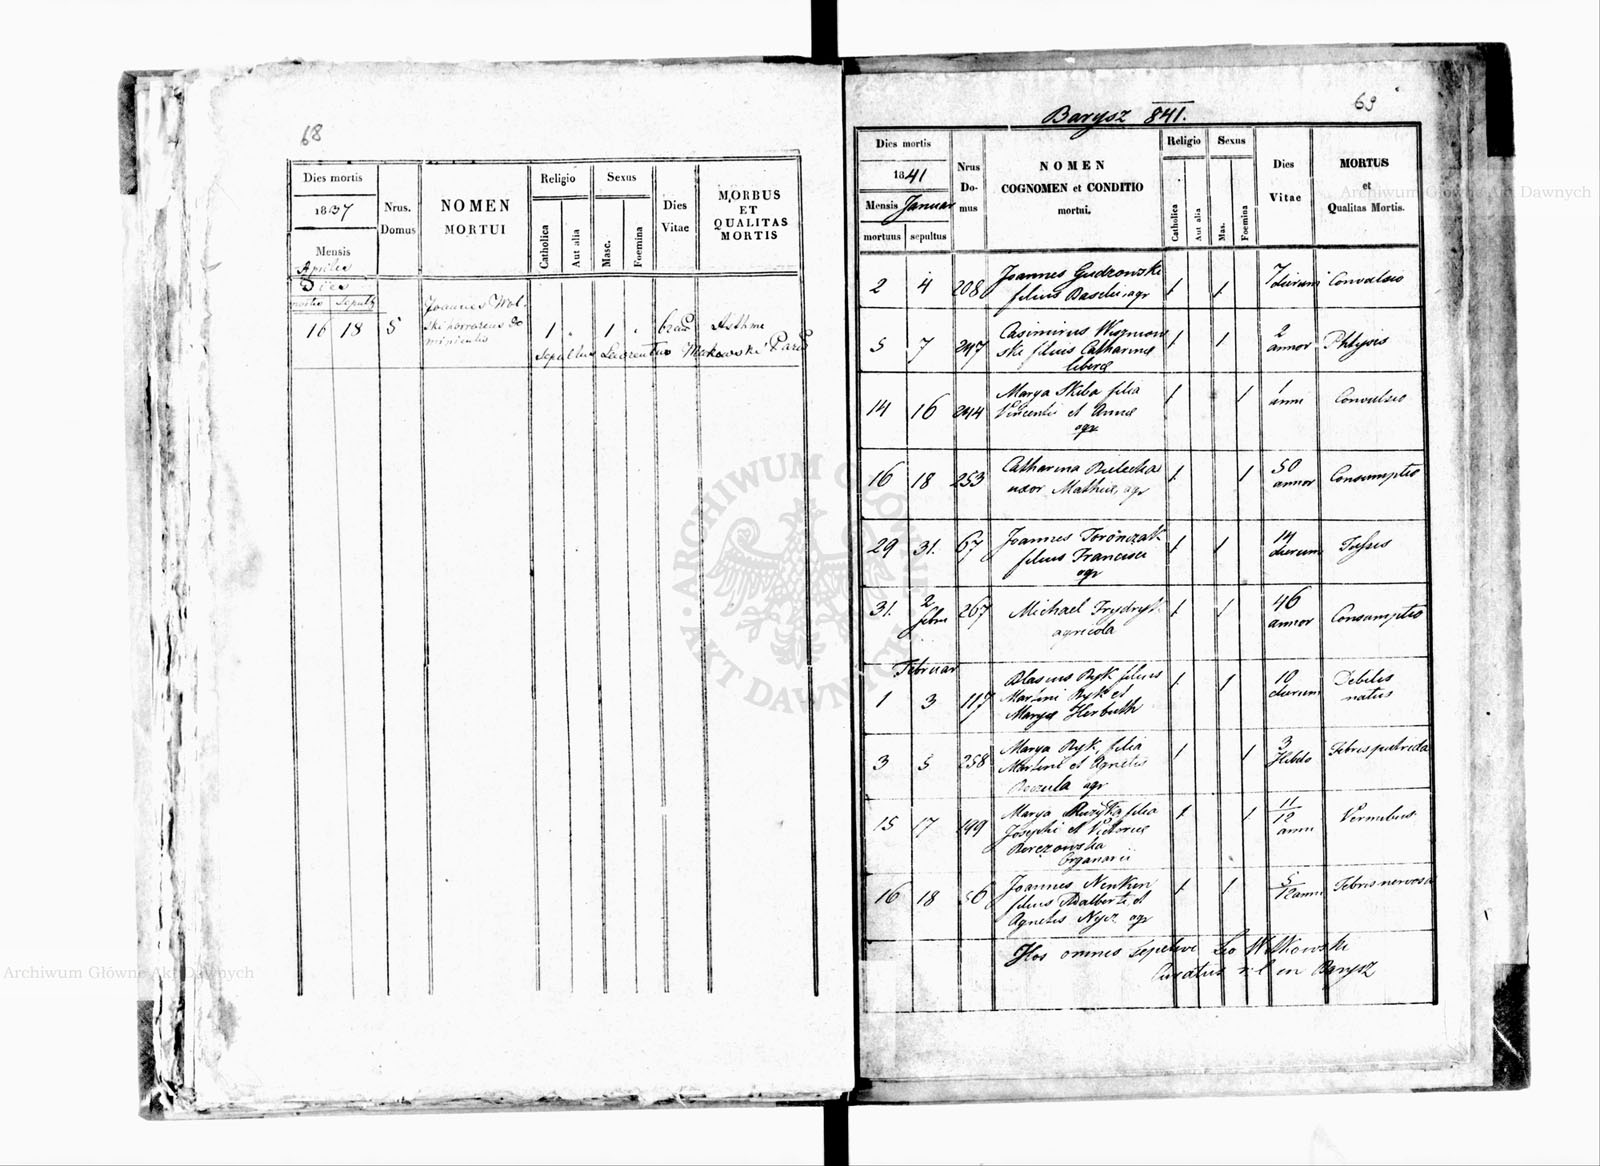 68
Dies mortis
1837
Mensis
Aprilis
Dies
mortis Sepult
Nrus.
Domus
NOMEN
MORTUI
Religio
Catholica
Aut alia
Sexus
Masc.
Foemina
Dies
Vitae
MORBUS
ET
QUALITAS
MORTIS
16 18 5 Joannes Wol-
ski
1 1 Asthme
Sepultus Laurentius Makowski
63
Barysz 841.
Dies mortis
1841
Mensis Januar
mortuus sepultus
Nrus
Do-
mus
NOMEN
COGNOMEN et CONDITIO
mortui.
Religio
Catholica
Aut alia
Sexus
Mas.
Foemina
Dies
Vitae
MORTUS
et
Qualitas Mortis.
2 4 208 Joannes Gudzowski 1 1 7 dierum Convulsio
filius Basilii agr
5 7 247 Casimirus Wiszniow 1 1 2 annor Phtysis
ski filius Catharinæ
liberæ
14 16 244 Marya Skiba filia 1 1 1 anni Convulsio
Vincenti et Annæ
agr
16 18 253 Catharina Bielecka 1 1 50 annor Consumptio
uxor Mathei, agr
29 31. 67 Joannes Torończak 1 1 14 dierum Tussis
filius Francisci
agr
31. 2 febru 267 Michael Frydryk 1 1 46 annor Consumptio
agricola
Februar
1 3 117 Blasius Ryk filius 1 1 10 dierum Debilis
Martini Ryk et natus
Marya Herbuth
3 5 258 Marya Ryk, filia 1 1 3 Hebdo Febris putrida
Martini et Agnetis
agr
15 17 149 Marya filia 1 1 11/12 anni Vermibus
Josephi et Victoriæ
Berezowska
Organarii
16 18 56 Joannes Nenken 1 1 5/12 anni Febris nervosa
filius Adalberti et
Agnetis Nycz agr
Hos omnes sepelivi Leo Witkowski
Curatus r. l. in Barysz
ARCHIWUM GŁÓWNE
AKT DAWNYCH
Archiwum Główne Akt Dawnych
Archiwum Główne Akt Dawnych